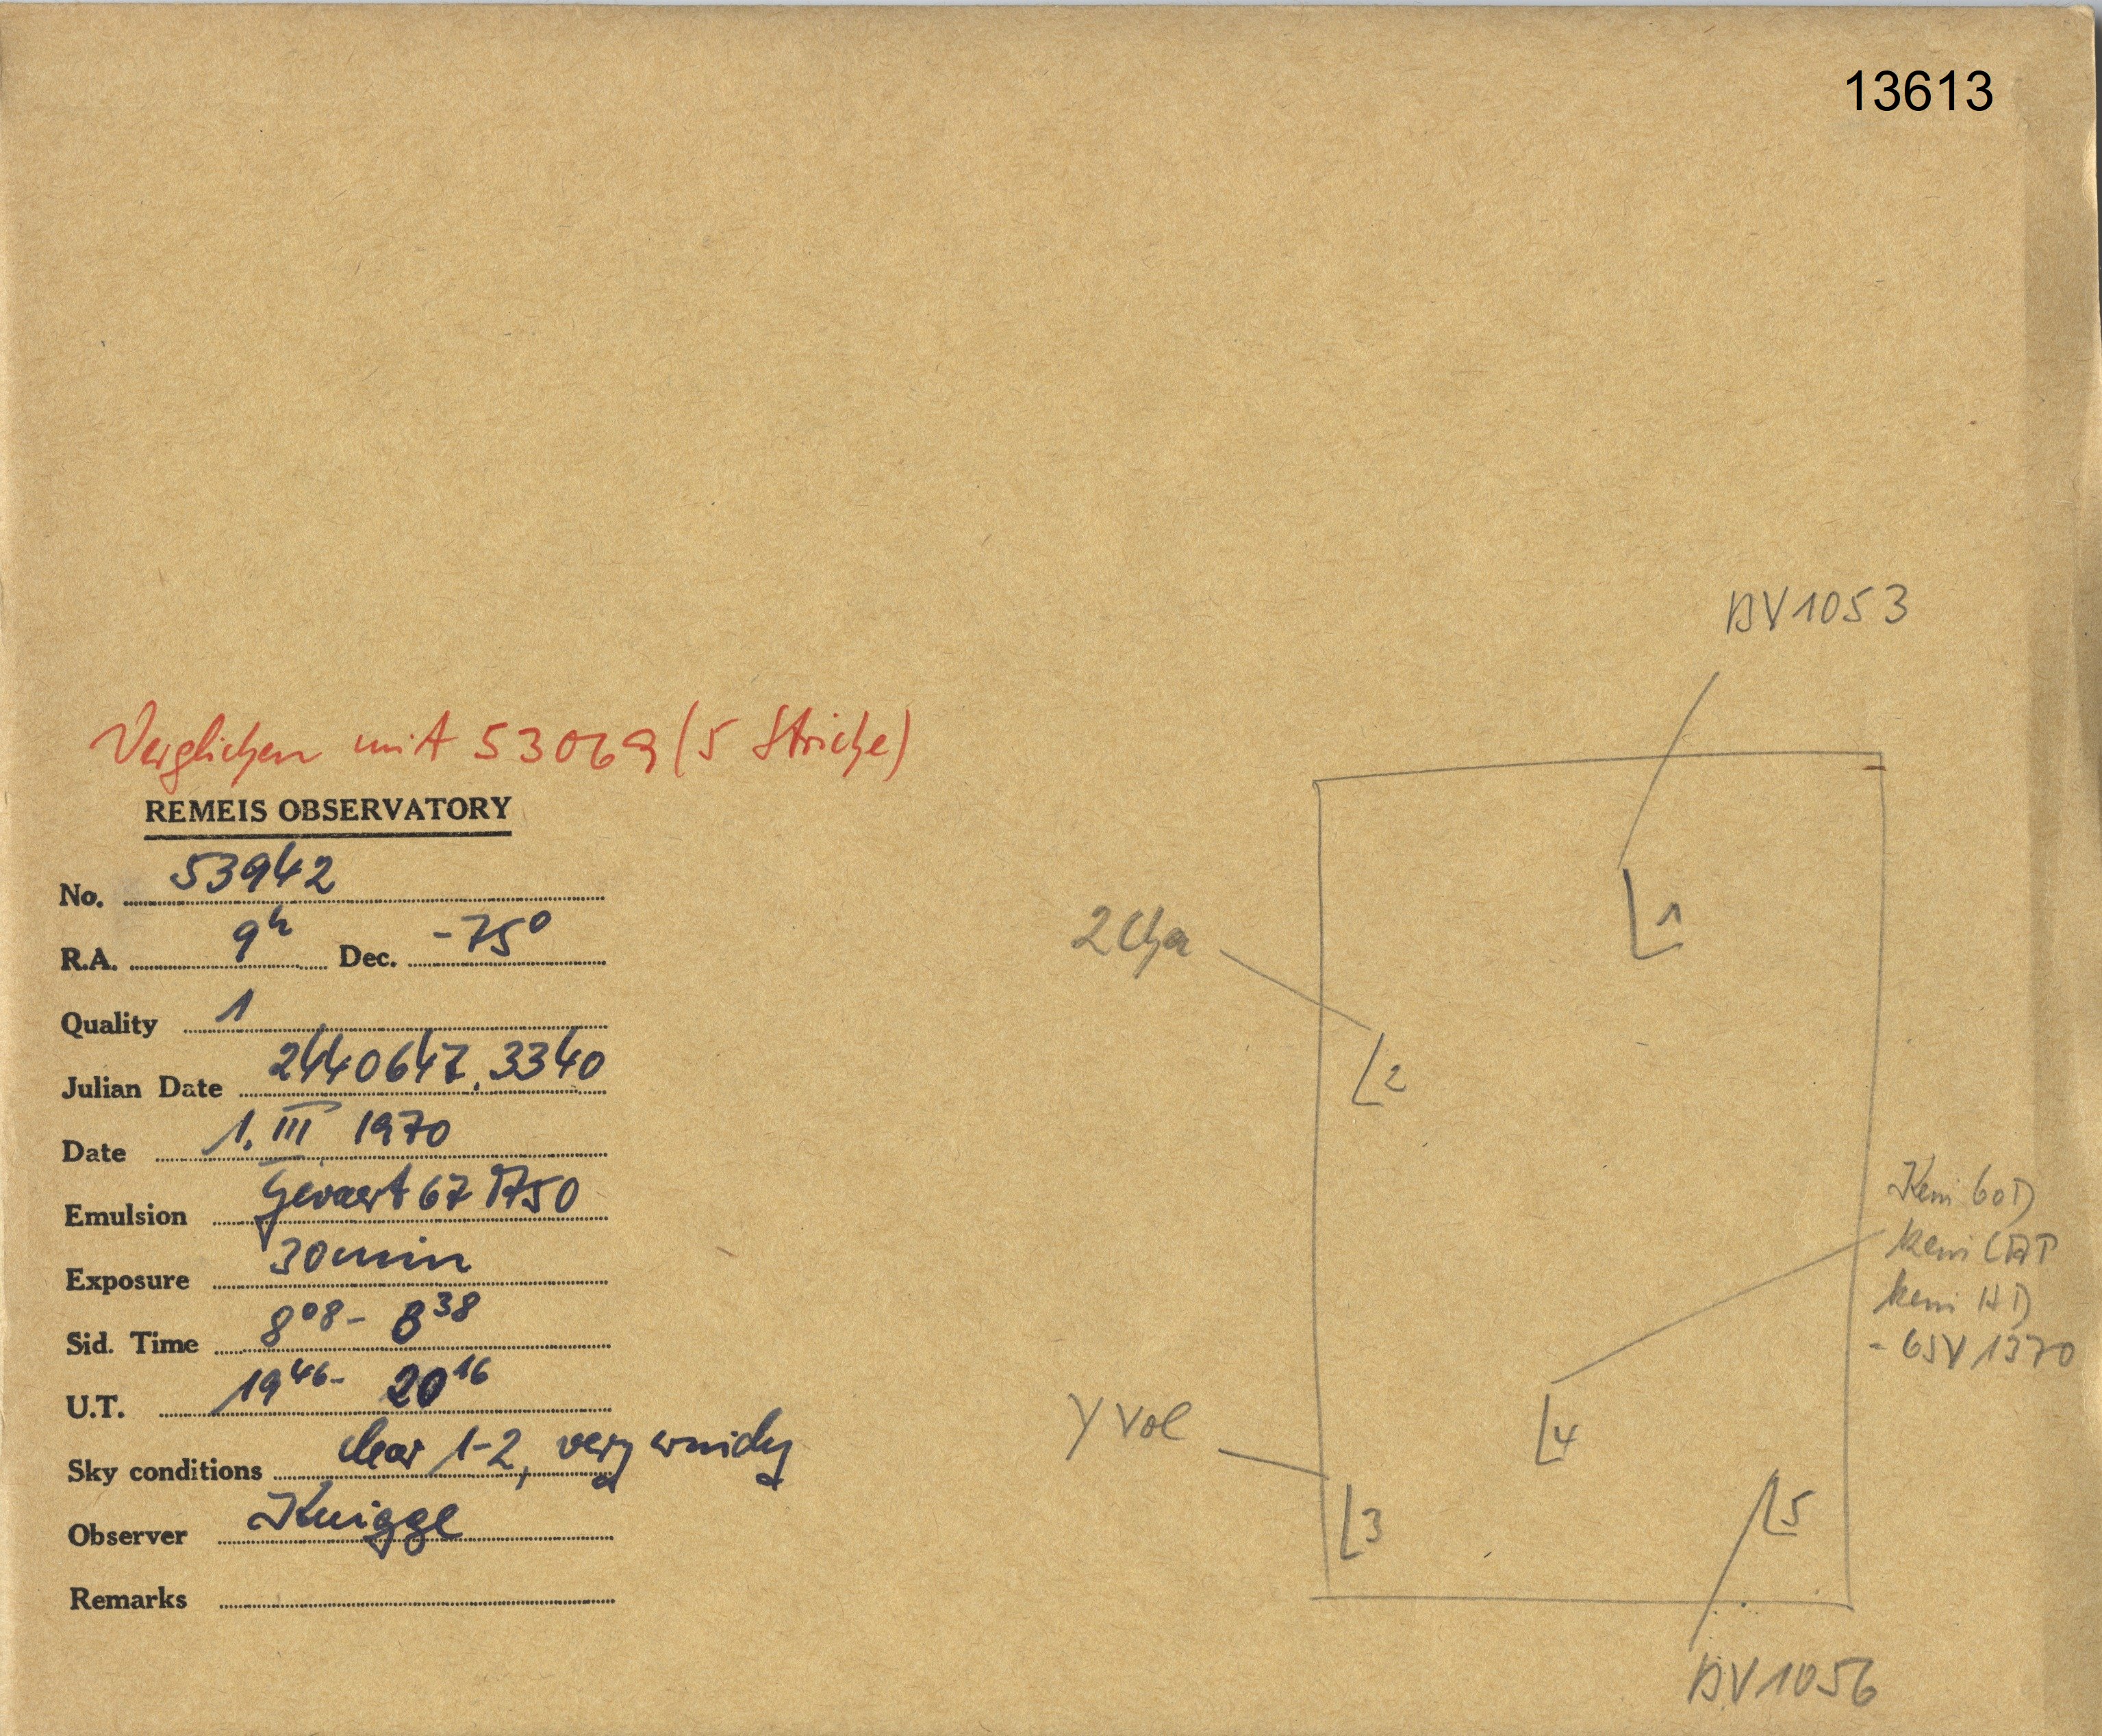 13613
BV 1053
Verglichen mit 53069 (5 Striche)
REMEIS OBSERVATORY
No. 53942
R.A. 9h Dec. -75°
Quality 1
Julian Date 2440647.3340
Date 1. III 1970
Emulsion Gevaert 67
Exposure 30 min
Sid. Time 8 08 - 8 38
U.T. 19 46 - 20 16
Sky conditions clear 1-2, very windy
Observer Knigge
Remarks
1
Z Cha
2
Kein GoD
kein CAP
kein HD
- CSV 1370
4
Y Vol
3
5
BV 1056